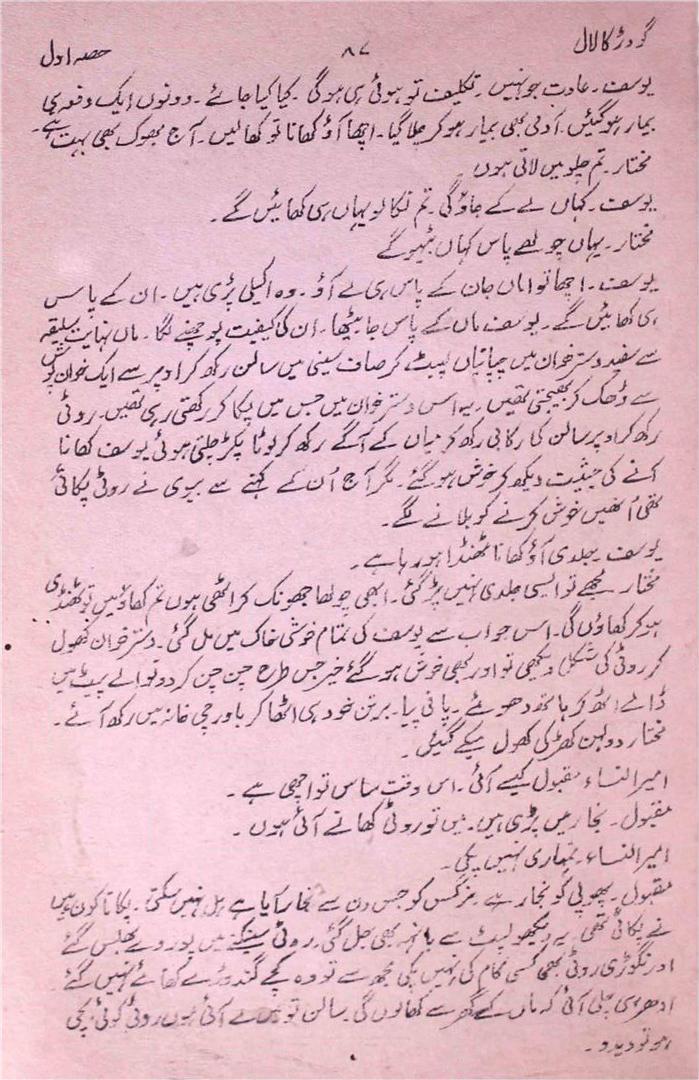 گودڑ کا لال ۸۷ حصہ اول
یوسف۔ عادت جو نہیں۔ تکلیف تو ہوئی ہی ہوگی۔ کیا کیا جائے۔ دونوں ایک دفعہ ہی
بیمار ہوگئیں۔ آدمی بھی بیمار ہوکر چلا گیا۔ اچھا آؤ کھانا تو کھا لیں۔ آج بھوک بھی بہت ہے۔
مختار۔ تم چلو میں لاتی ہوں
یوسف۔ کہاں لے کے جاؤگی۔ تم نکالو یہاں ہی کھائیں گے۔
مختار۔ یہاں چولھے پاس کہاں بیٹھو گے
یوسف۔ اچھا تو اماں جان کے پاس ہی لے آؤ۔ وہ اکیلی پڑی ہیں۔ ان کے پاس
ہی کھائیں گے۔ یوسف ماں کے پاس جا بیٹھا۔ ان کی کیفیت پوچھنے لگا۔ ماں نہایت سلیقہ
سے سفید دسترخوان میں چپاتیاں لپیٹ کر صاف سینی میں سالن رکھ کر اوپر سے ایک خوان پوش
سے ڈھک کر بھیجتی تھیں۔ یہ اس دسترخوان میں جس میں پکا کر رکھتی رہی تھیں۔ روٹی
رکھ کر اوپر سالن کا رکابی رکھ کر میاں کے آگے رکھ کر لوٹا پکڑ چلتی ہوئی یوسف کھانا
آنے کی حیثیت دیکھ کر خوش ہوگئے۔ مگر آج اُن کے کہنے سے بیوی نے روٹی پکائی
تھی اُنھیں خوش کرنے کو بلانے لگے۔
یوسف۔ جلدی آؤ کھانا ٹھنڈا ہو رہا ہے۔
مختار۔ مجھے تو ایسی جلدی نہیں پڑ گئی۔ ابھی چولھا جھونک کر اٹھی ہوں تم کھاؤ میں تو ٹھنڈی
ہوکر کھاؤں گی۔ اس جواب سے یوسف کی تمام خوشی خاک میں مل گئی۔ دسترخوان کھول
کر روٹی کی شکل دیکھی تو اور بھی خوش ہوگئے خیر جس طرح چن چن کر دو نوالے پیٹ میں
ڈالے اٹھ کر ہاتھ دھوئے۔ پانی پیا۔ برتن خود ہی اٹھا کر باورچی خانہ میں رکھ آئے۔
مختار دولہن کھڑکی کھول میکے گئیں۔
امیر النساء۔ مقبول کیسے آئی۔ اس وقت ساس تو اچھی ہے۔
مقبول۔ بخار میں پڑی ہیں۔ میں تو روٹی کھانے آئی ہوں۔
امیر النساء۔ تمہاری نہیں پکی۔
مقبول۔ پھوپی کو بخار ہے نرگس کو جس دن سے بخار آیا ہے ہل نہیں سکتی۔ پکاتا کون میں
نے پکائی تھی۔ یہ دیکھو لپٹ سے بانہہ بھی جل گئی۔ روٹی سینکنے میں پورو ے جھلس گئے
اور نگوڑی روٹی بھی کسی کام کی نہیں پکی مجھ سے تو وہ کچے گندوڑے کھائے نہیں گئے
ادھر ہی چلی آئی کہ ماں کے گھر سے کھالوں گی۔ سالن تو میں لے آئی ہوں روٹی کوئی بچی
ہو تو دیدو۔